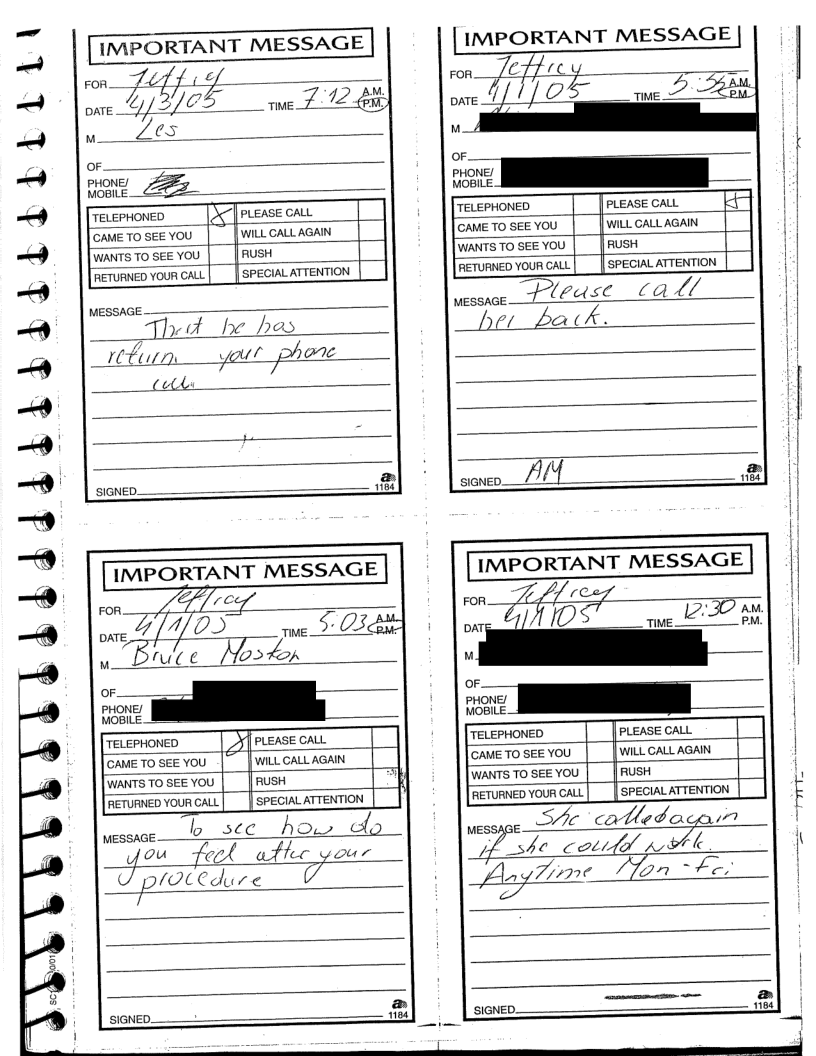 IMPORTANT MESSAGE
FOR Jeffrey
DATE 4/3/05 TIME 7:12 A.M.
P.M.
M Les
OF
PHONE/
MOBILE
TELEPHONED X PLEASE CALL
CAME TO SEE YOU WILL CALL AGAIN
WANTS TO SEE YOU RUSH
RETURNED YOUR CALL SPECIAL ATTENTION
MESSAGE
That he has
return your phone
call
SIGNED
1184
IMPORTANT MESSAGE
FOR Jeffrey
DATE 4/1/05 TIME 5:55 A.M.
P.M.
M
OF
PHONE/
MOBILE
TELEPHONED PLEASE CALL X
CAME TO SEE YOU WILL CALL AGAIN
WANTS TO SEE YOU RUSH
RETURNED YOUR CALL SPECIAL ATTENTION
MESSAGE Please call
her back.
SIGNED AM
1184
IMPORTANT MESSAGE
FOR Jeffrey
DATE 4/1/05 TIME 5:03 A.M.
P.M.
M Bruce Moskon
OF
PHONE/
MOBILE
TELEPHONED X PLEASE CALL
CAME TO SEE YOU WILL CALL AGAIN
WANTS TO SEE YOU RUSH
RETURNED YOUR CALL SPECIAL ATTENTION
MESSAGE To see how do
you feel after your
procedure
SIGNED
1184
IMPORTANT MESSAGE
FOR Jeffrey
DATE 4/1/05 TIME 12:30 A.M.
P.M.
M
OF
PHONE/
MOBILE
TELEPHONED PLEASE CALL
CAME TO SEE YOU WILL CALL AGAIN
WANTS TO SEE YOU RUSH
RETURNED YOUR CALL SPECIAL ATTENTION
MESSAGE She called again
if she could work.
Anytime Mon-Fri
SIGNED
1184